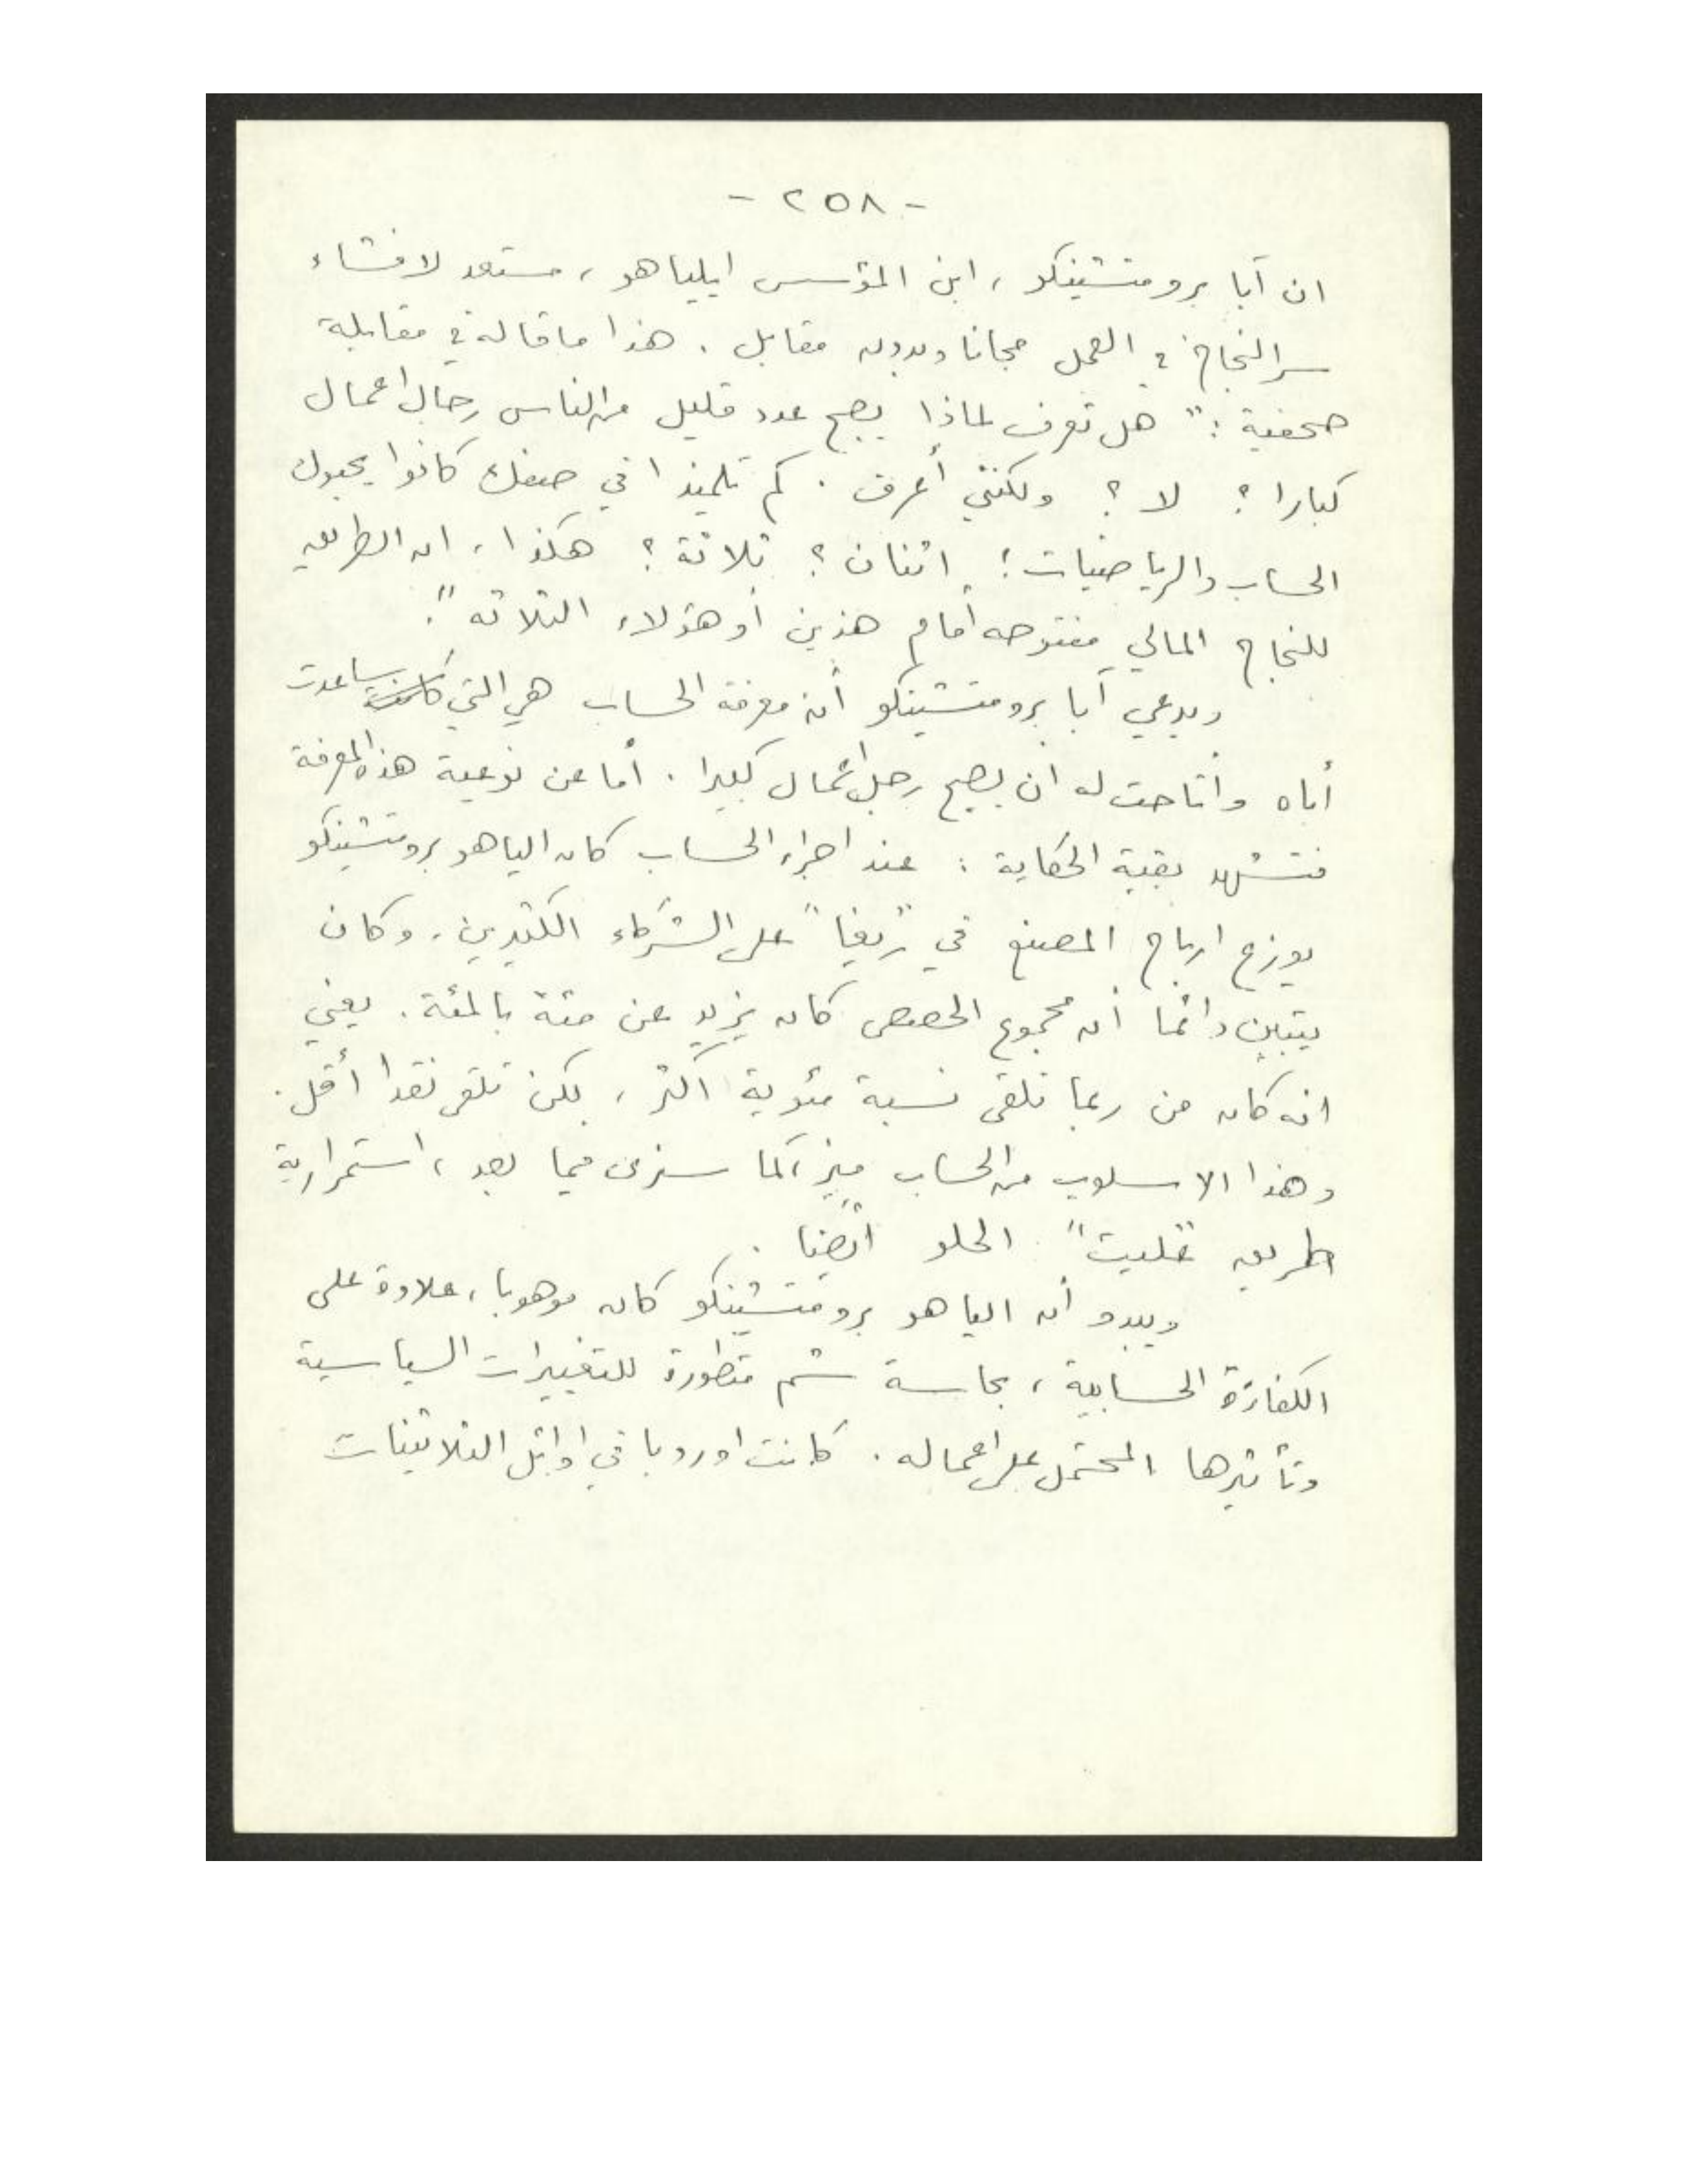 - ٢٥٨ -
ان آبا برومتشينكو ، ابن المؤسس ايلياهو ، مستعد لافشاء
سر النجاح في العمل مجانا وبدون مقابل . هذا ما قاله في مقابلة
صحفية : " هل تعرف لماذا يصبح عدد قليل من الناس رجال اعمال
كبارا ؟ لا ؟ ولكنني أعرف . كم تلميذا في صفك كانوا يحبون
الحساب والرياضيات ؟ اثنان ؟ ثلاثة ؟ هكذا ، ان الطريق
للنجاح المالي مفتوحه أمام هذين أو هؤلاء الثلاثه " .
ويدعي آبا برومتشينكو أن معرفة الحساب هي التي ساعدت
أباه وأتاحت له ان يصبح رجل اعمال كبيرا . أما عن نوعية هذه المعرفة
فتشهد بقية الحكاية : عند اجراء الحساب كان الياهو برومتشينكو
يوزع ارباح المصنع في " ريغا " على الشركاء الكثيرين . وكان
يتبين دائما أن مجموع الحصص كان يزيد عن مئة بالمئة . يعني
انه كان من ربما تلقى نسبة مئوية اكثر ، لكن تلقى نقدا أقل .
وهذا الاسلوب من الحساب ميز ، كما سنرى فيما بعد ، استمرارية
طريق " عليت " الحلو أيضا .
ويبدو أن الياهو برومتشينكو كان موهوبا ، علاوة على
الكفاءة الحسابية ، بحاسة شم متطورة للتغييرات السياسية
وتأثيرها المحتمل على اعماله . كانت اوروبا في اوائل الثلاثينات